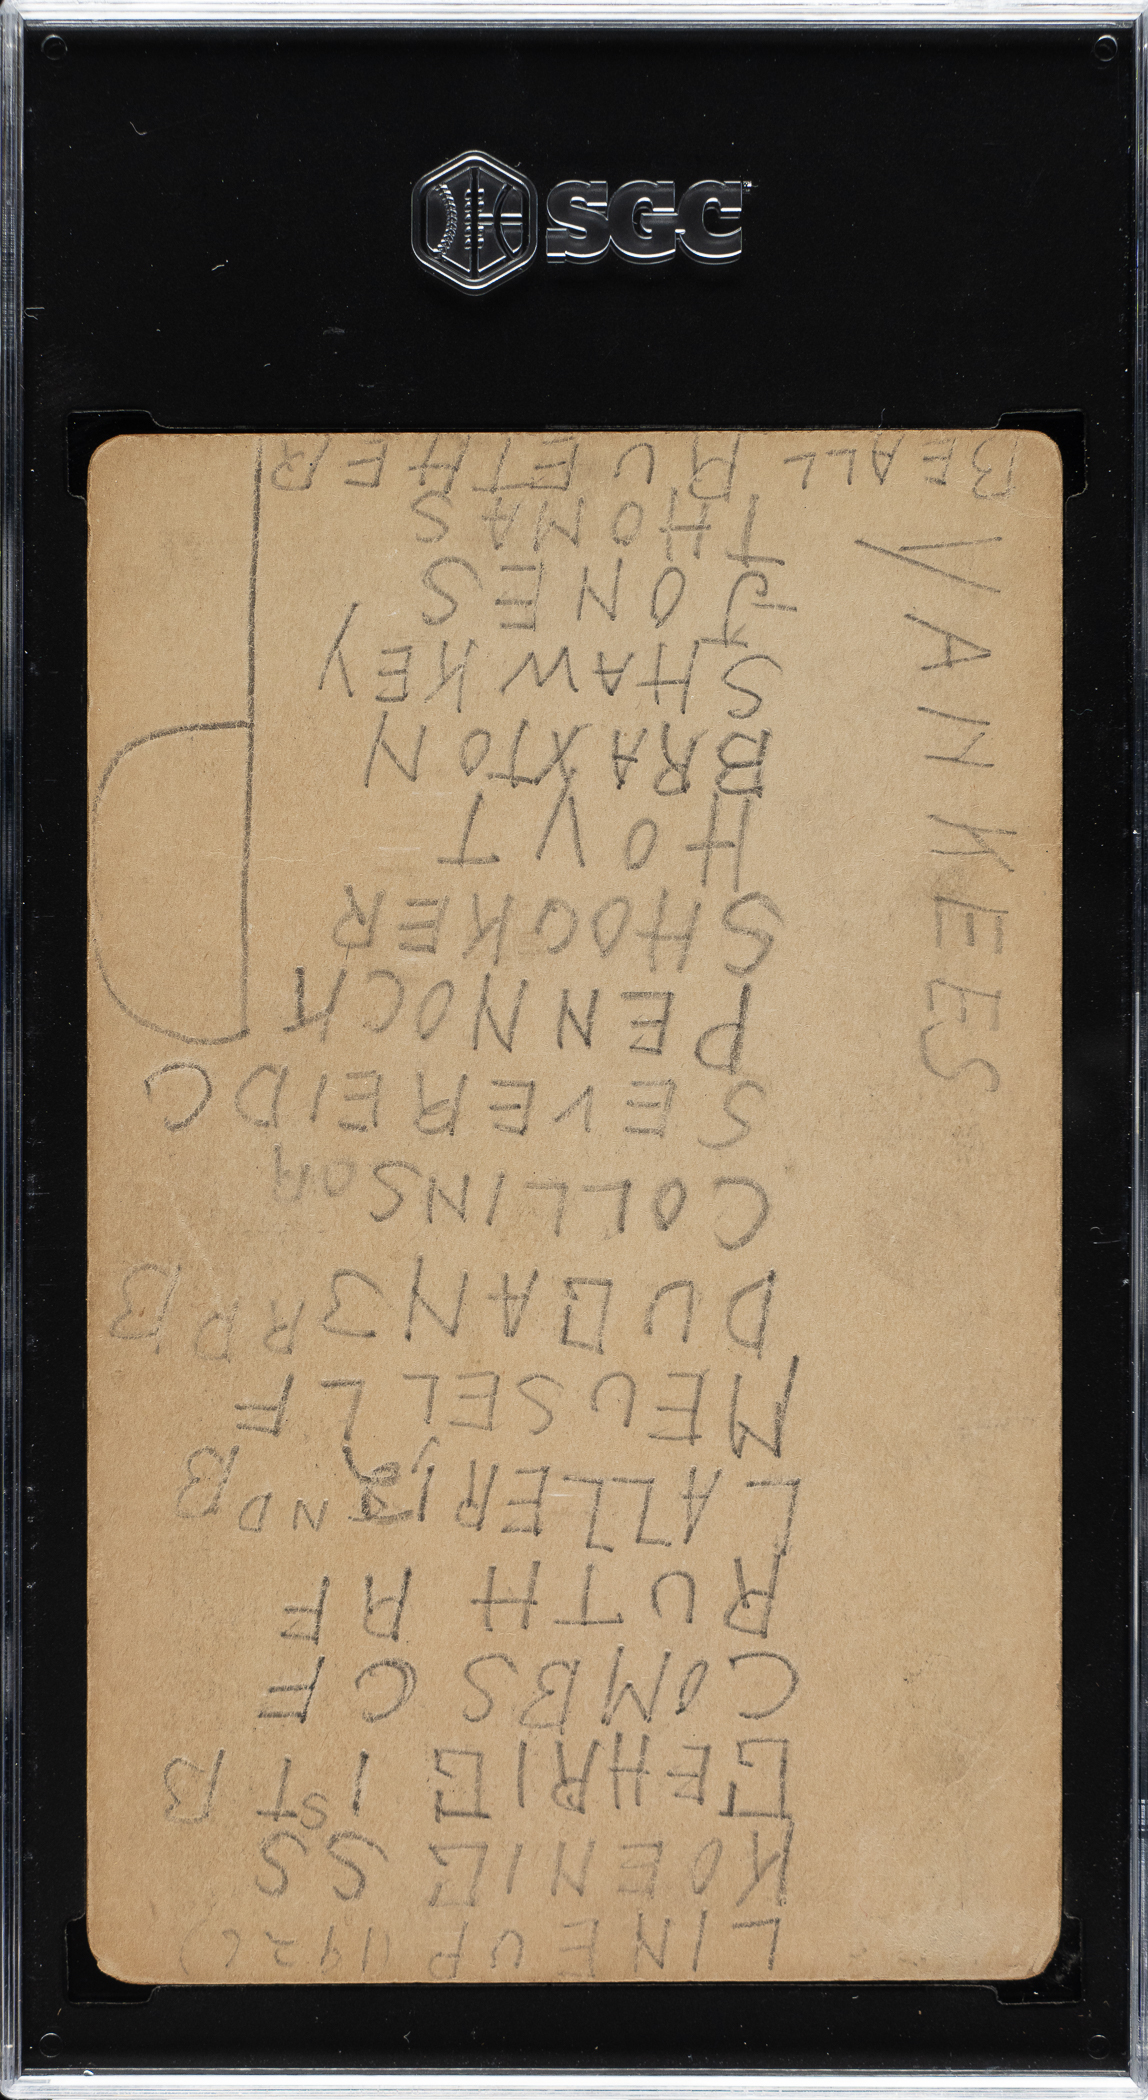 SGC
LINE UP (1926)
KOENIG SS
GEHRIG 1ST B
COMBS CF
RUTH RF
LAZZERI 2ND B
MEUSEL LF
DUGAN 3RD B
COLLINS OR
SEVEREID C
PENNOCK
SHOCKER
HOYT
BRAXTON
SHAWKEY
JONES
THOMAS
BEALL RUETHER
YANKEES